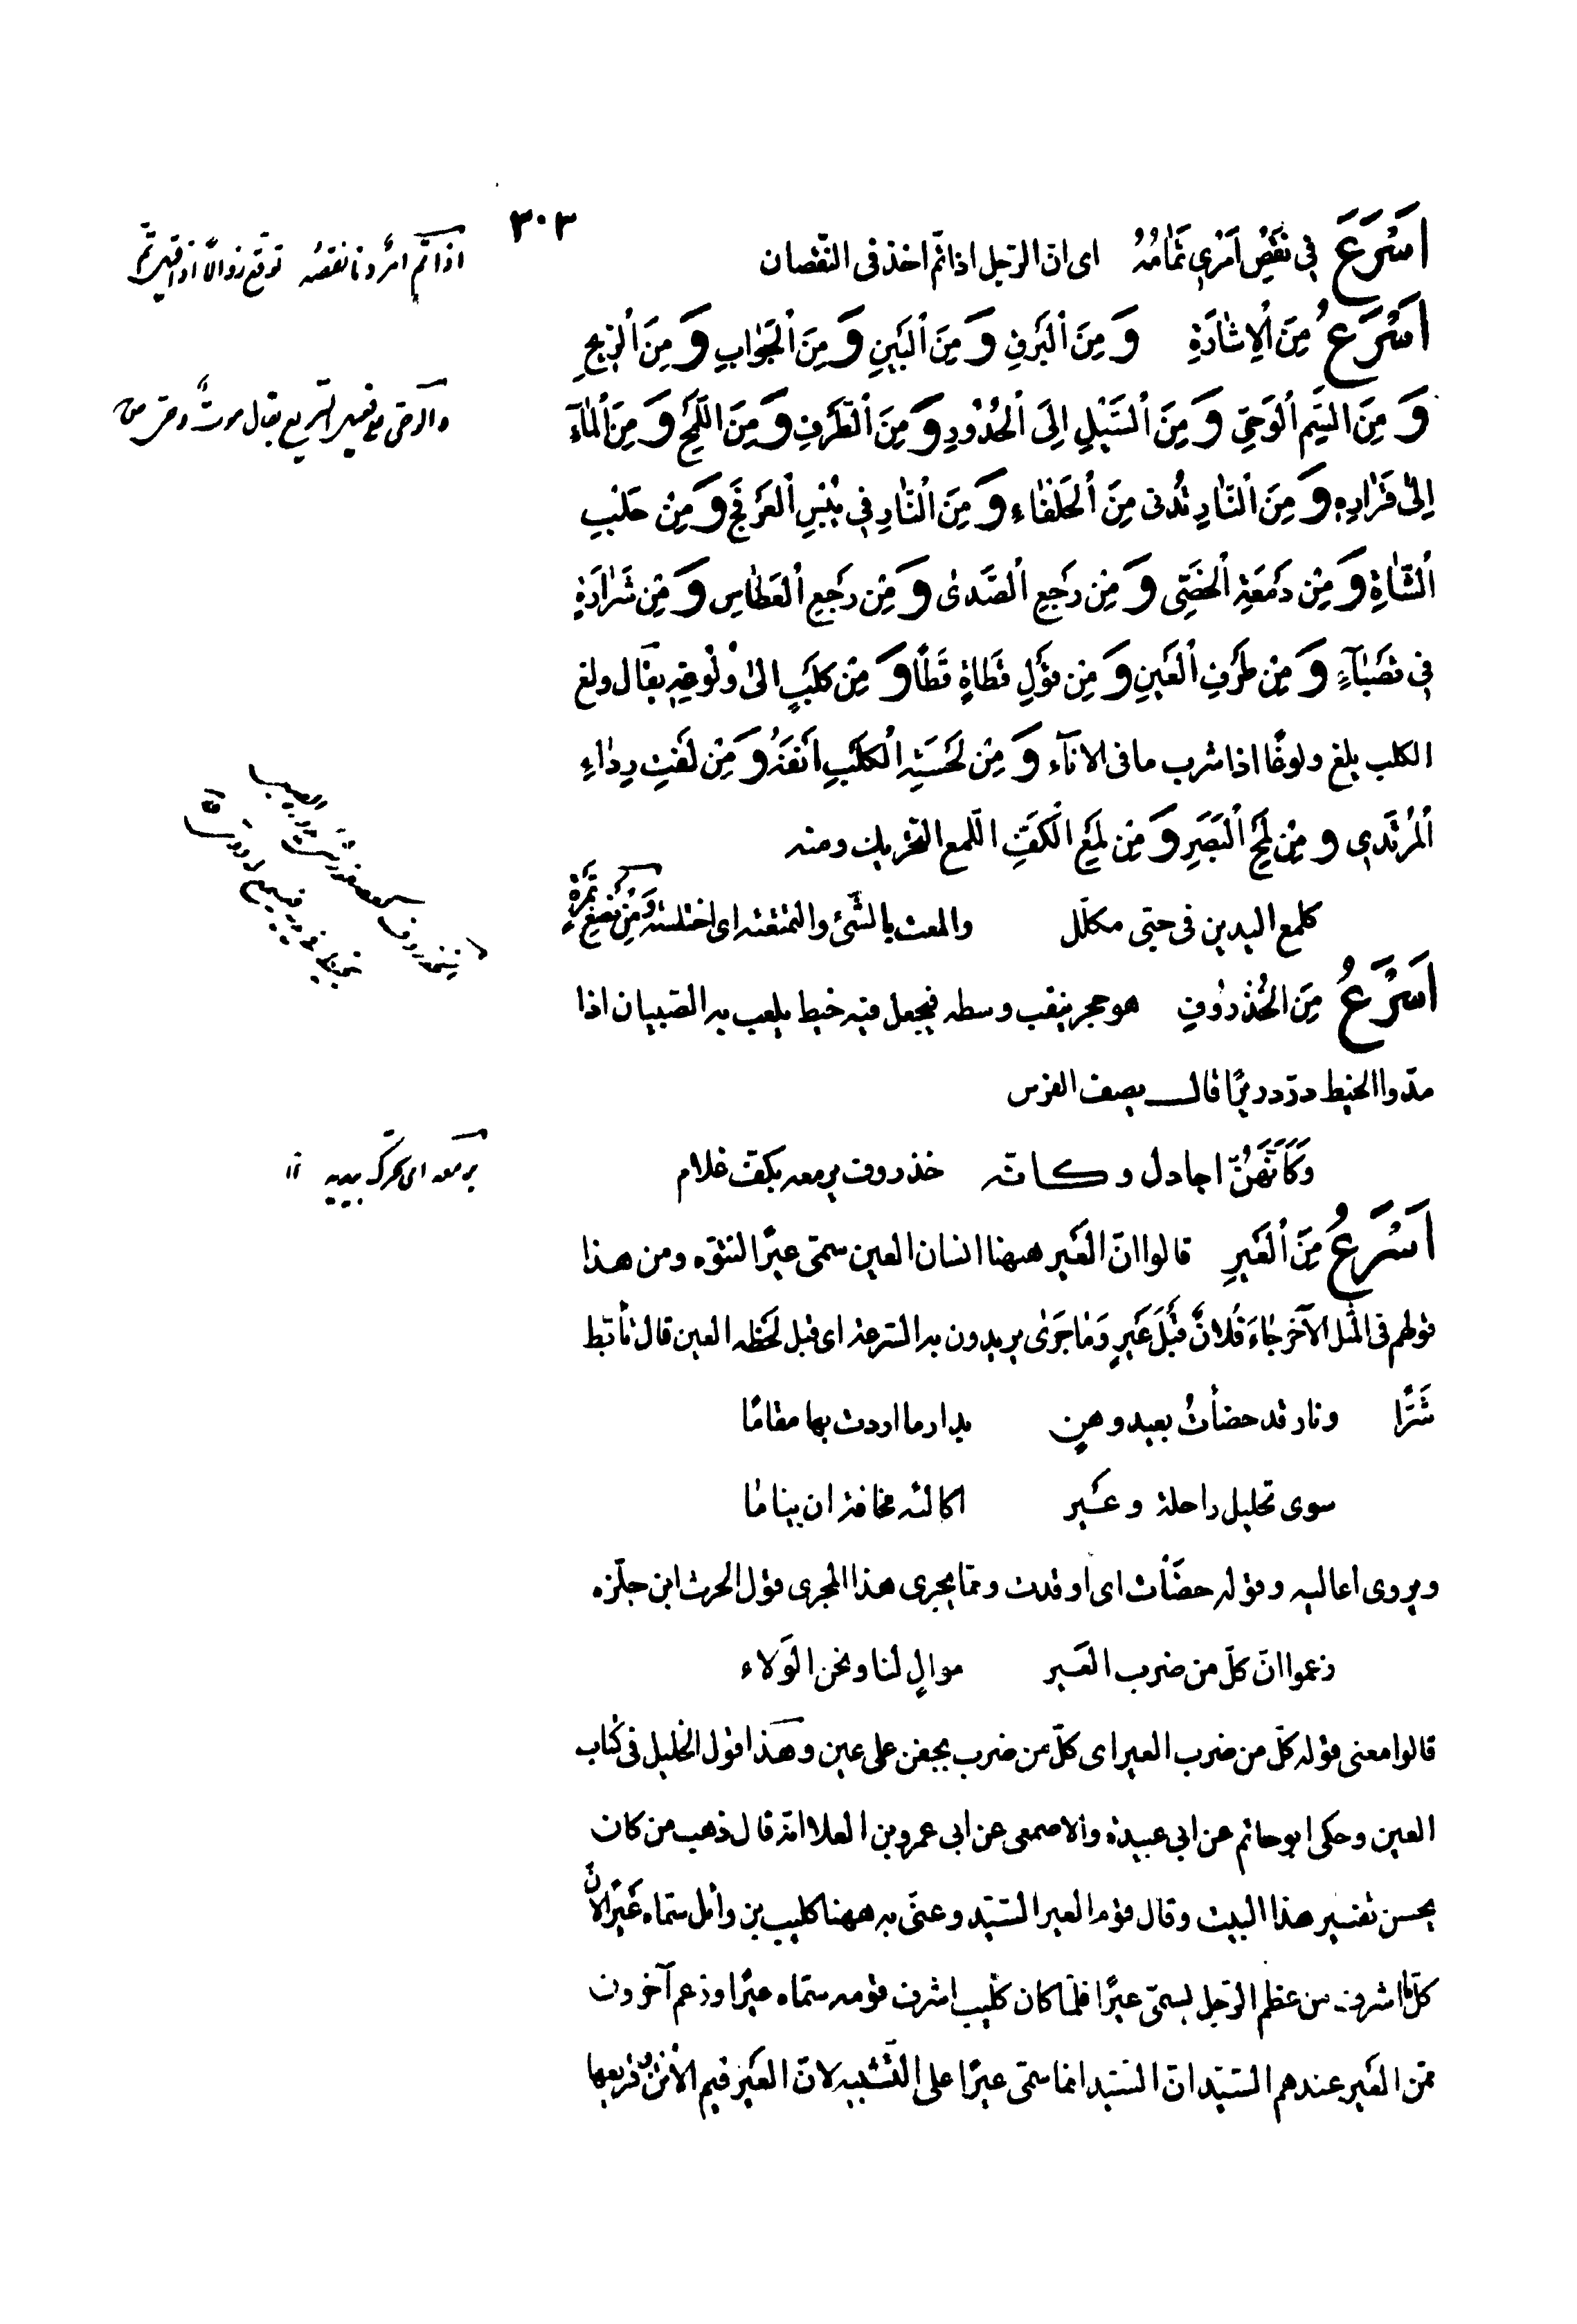 ٣٠٣
اَسْرَعَ فِي نَقْصِ امْرِئٍ تَمَامُهُ اى انّ الرّجل اذا تمّ اخذ فى النّقصان
اَسْرَعُ مِنَ الْاِشَارَةِ وَ مِنَ الْبَرْقِ وَ مِنَ الْبَيْنِ وَ مِنَ الْجَوَابِ وَ مِنَ الرِّيحِ
وَ مِنَ السَّمِّ الْوَحِيِّ وَ مِنَ السَّيْلِ اِلَى الْحُدُورِ وَ مِنَ الطَّرْفِ وَ مِنَ اللَّمْحِ وَ مِنَ الْمَآءِ
اِلىٰ قَرَارِهِ وَ مِنَ النَّارِ تُدْنى مِنَ الْحَلْفَاءِ وَ مِنَ النَّارِ فِي يَبَسِ الْعَرْفَجِ وَ مِنْ حَلْبِ
الشَّاةِ وَ مِنْ دَمْعَةِ الْخَصِّى وَ مِنْ رَجْعِ الصَّدىٰ وَ مِنْ رَجْعِ الْعَطَاسِ وَ مِنْ شَرَارَةٍ
فِي قَصْبَآءَ وَ مِنْ طَرْفِ الْعَيْنِ وَ مِنْ قَوْلِ قَطَاةٍ قَطَا وَ مِنْ كَلْبٍ الىٰ وُلُوغِهِ يقال ولغ
الكلب يلغ ولوغًا اذا شرب ما فى الانآء وَ مِنْ لَحْسَةِ الْكَلْبِ اَنْفَهُ وَ مِنْ لَفْتِ رِدَاءِ
الْمُرْتَدِي و مِنْ لَمْحِ الْبَصَرِ وَ مِنْ لَمْعِ الْكَفِّ اللّمع التحريك ومنه
كلمع اليدين فى حبّى مكلّل والمعت بالشّئ والتمعته اى اختلسته وَ مِنْ مَضْغِ تَمْرَةٍ
اَسْرَعُ مِنَ الْخُذْرُوفِ هو حجر ينقب وسطه فيجعل فيه خيط يلعب به الصّبيان اذا
مدّوا الخيط درّ دريرًا قال يصف الفرس
وَكَاَنَّهُنَّ اجادل وكانّه خذروف يرمعه بكفّ غلام
اَسْرَعُ مِنَ الْعَيْرِ قالوا انّ العَير ههنا انسان العين سمّى عيرًا لنتوّه ومن هذا
قولهم فى المثل الآخر جَاءَ فُلانٌ قَبْلَ عَيْرٍ وَمَا جَرىٰ يريدون به السّرعة اى قبل لحظه العين قال تأبّط
شَرًّا ونار قد حضأتُ بعيد وهنٍ بدار ما اردت بها مقامًا
سوى تحليل راحلة وعَير اكالئه مخافة ان يناما
ويروى اعاليه وقوله حضَأت اى اوقدت وممّا يجرى هذا المجرى قول الحرث ابن حلّزه
زعموا انّ كلّ من ضرب العَير موالٍ لنا ونحن الوَلاء
قالوا معنى قوله كلّ من ضرب العير اى كلّ من ضرب بجفن على عين وهذا قول الخليل فى كتاب
العين وحكى ابو حاتم عن ابى عبيدة والاصمعى عن ابى عمرو بن العلا انّه قال ذهب من كان
يحسن تفسير هذا البيت وقال قوم العير السّيّد وعنى به ههنا كليب بن وائل سمّاه عَيْرًا لانّ
كلّما اشرف من عظم الرّجل يسمّى عيرًا فلمّا كان كليب اشرف قومه سمّاه عيرًا وزعم آخرون
ممّن العَير عندهم السّيّد انّ السّيّد انّما سمّى عيرًا على التّشبيه لانّ العَير قيم الأتن وقريعها
اذا تمّ امر دنا نقصه توقّع زوالا اذا قيل تمّ
والوحىّ السريع يقال موتٌ وحىّ
يرمعه اى يحرّكه بيديه ١١